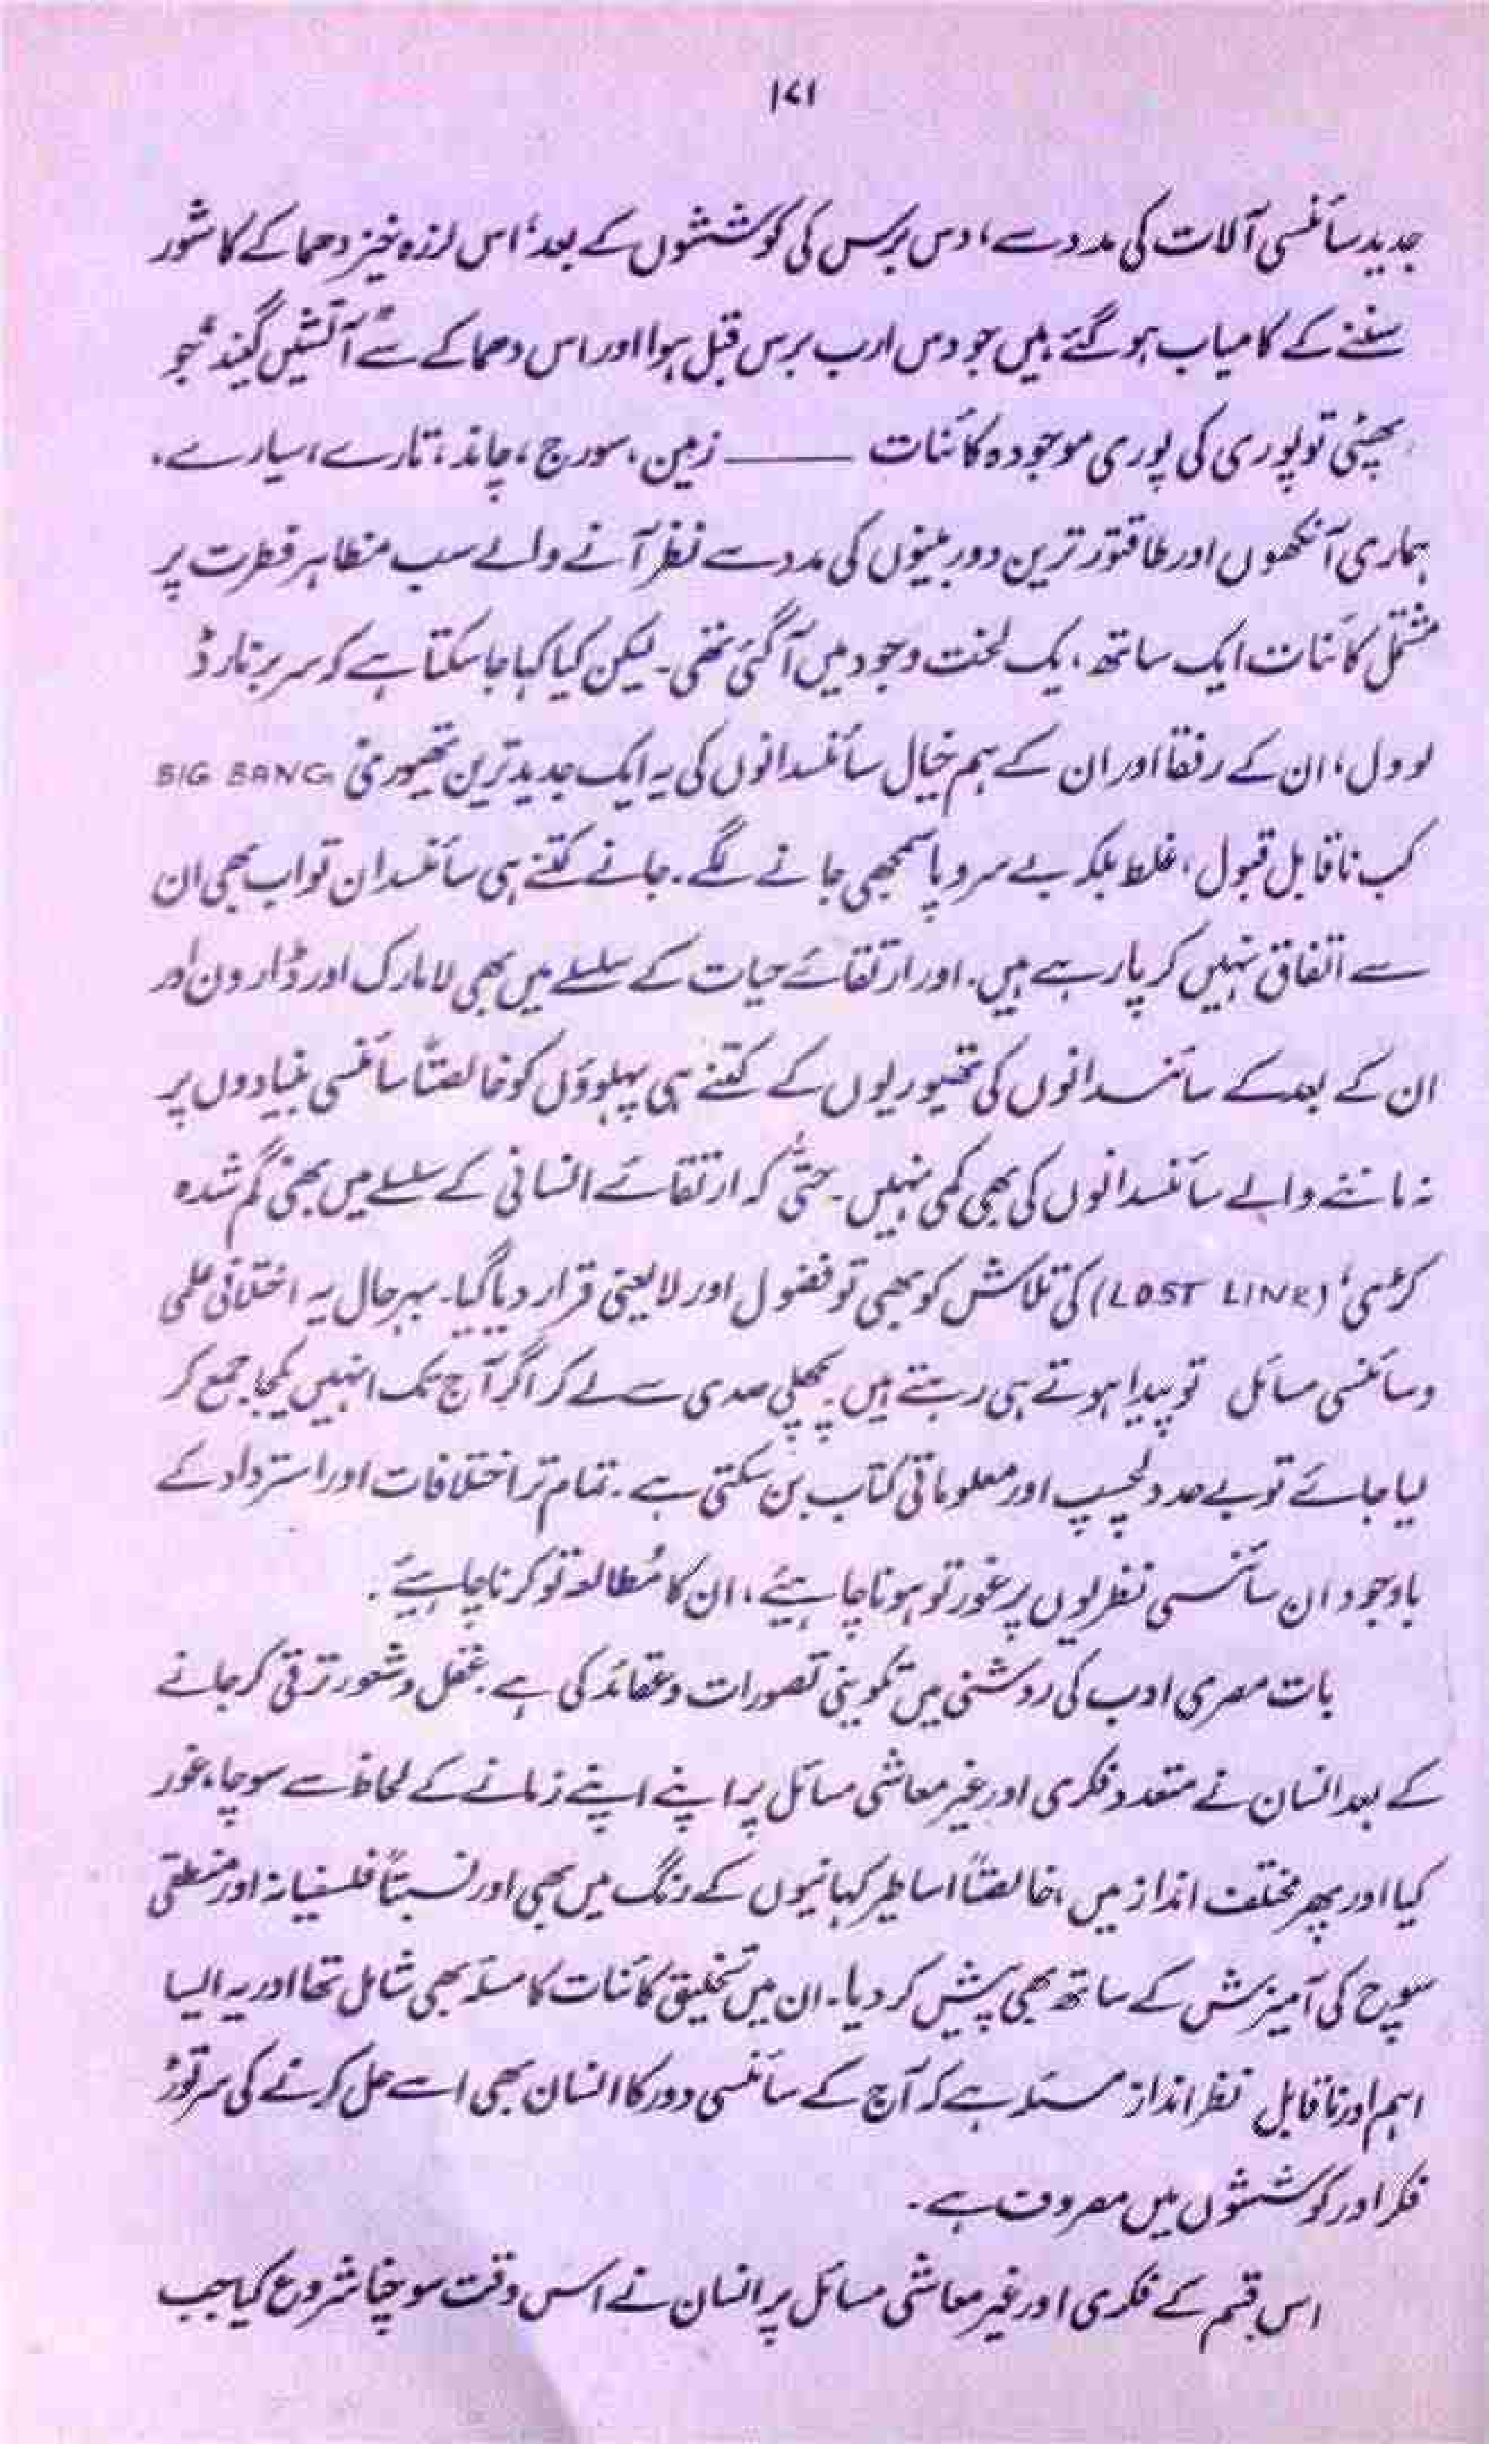 ۱۷۱
جدید سائنسی آلات کی مدد سے، دس برس کی کوششوں کے بعد، اس لرزہ خیز دھماکے کا شور
سننے کے کامیاب ہو گئے ہیں جو دس ارب برس قبل ہوا اور اس دھماکے سے "آتشیں گیند" جو
پھٹی تو پوری کی پوری موجودہ کائنات ——— زمین، سورج، چاند، تارے، سیارے،
ہماری آنکھوں اور طاقتور ترین دوربینوں کی مدد سے نظر آنے والے سب مظاہر فطرت پر
مشتمل کائنات ایک ساتھ، یک لخت وجود میں آ گئی تھی۔ لیکن کیا کہا جا سکتا ہے کہ سر برنارڈ
لوول، ان کے رفقا اور ان کے ہم خیال سائنسدانوں کی یہ ایک جدید ترین تھیوری BIG BANG
کب ناقابل قبول، غلط بلکہ بے سروپا سمجھی جانے لگے۔ جانے کتنے ہی سائنسدان تو اب بھی ان
سے اتفاق نہیں کر پا رہے ہیں۔ اور ارتقائے حیات کے سلسلے میں بھی لامارک اور ڈارون اور
ان کے بعد کے سائنسدانوں کی تھیوریوں کے کتنے ہی پہلوؤں کو خالصتاً سائنسی بنیادوں پر
نہ ماننے والے سائنسدانوں کی بھی کمی نہیں۔ حتیٰ کہ ارتقائے انسانی کے سلسلے میں بھی 'گم شدہ
کڑی' (LOST LINK) کی تلاش کو بھی تو فضول اور لایعنی قرار دیا گیا۔ بہرحال یہ اختلافی علمی
و سائنسی مسائل تو پیدا ہوتے ہی رہتے ہیں۔ پچھلی صدی سے لے کر اگر آج تک انہیں یکجا جمع کر
لیا جائے تو بے حد دلچسپ اور معلوماتی کتاب بن سکتی ہے۔ تمام تر اختلافات اور استرداد کے
باوجود ان سائنسی نظریوں پر غور تو ہونا چاہیئے، ان کا مُطالعہ تو کرنا چاہیئے۔
بات مصری ادب کی روشنی میں تکوینی تصورات و عقائد کی ہے۔ عقل و شعور ترقی کر جانے
کے بعد انسان نے متعدد فکری اور غیر معاشی مسائل پر اپنے اپنے زمانے کے لحاظ سے سوچا، غور
کیا اور پھر مختلف انداز میں، خالصتاً اساطیر کہانیوں کے رنگ میں بھی اور نسبتاً فلسفیانہ اور منطقی
سوچ کی آمیزش کے ساتھ بھی پیش کر دیا۔ ان میں تخلیق کائنات کا مسئلہ بھی شامل تھا اور یہ ایسا
اہم اور ناقابل نظر انداز مسئلہ ہے کہ آج کے سائنسی دور کا انسان بھی اسے حل کرنے کی سر توڑ
فکر اور کوششوں میں مصروف ہے۔
اس قسم کے فکری اور غیر معاشی مسائل پر انسان نے اس وقت سوچنا شروع کیا جب